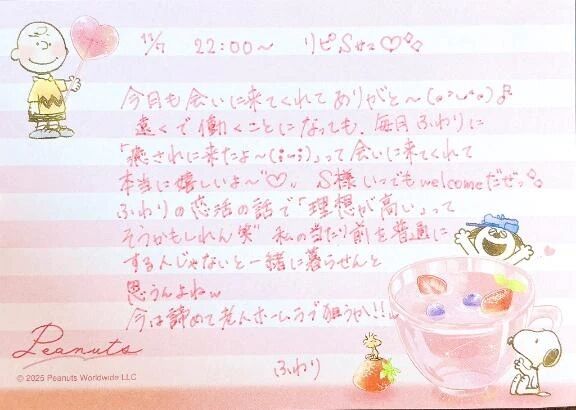 12/7 22:00～ リピSサマ♡
今日も会いに来てくれてありがと～(o˘◡˘o)♬
遠くで働くことになっても、毎月ふわりに
「癒されに来たよ～(i~i)」って会いに来てくれて
本当に嬉しいよ～♡。S様いつでもwelcomeだぜっ
ふわりの恋活の話で「理想が高い」って
そうかもしれん笑 私の当たり前を普通に
する人じゃないと一緒に暮らせんと
思うんよねw
今は諦めて老人ホームラブ狙うかい!!
ふわり
Peanuts
© 2025 Peanuts Worldwide LLC